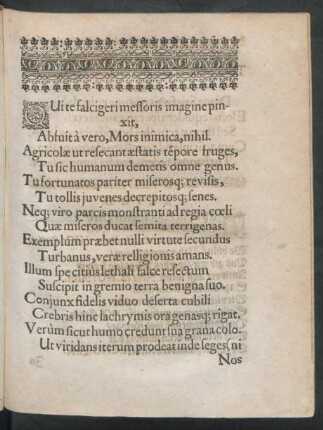 QUi te falcigeri messoris imagine pin-
xit,
Abfuit à vero, Mors inimica, nihil.
Agricolæ ut resecant æstatis tẽpore fruges,
Tu sic humanum demetis omne genus.
Tu fortunatos pariter miserosq; revisis,
Tu tollis juvenes decrepitosq; senes.
Neq; viro parcis monstranti ad regia cœli
Quæ miseros ducat semita terrigenas.
Exemplum præbet nulli virtute secundus
Turbanus, veræ relligionis amans.
Illum spe citius lethali falce resectum
Suscipit in gremio terra benigna suo.
Conjunx fidelis viduo deserta cubili
Crebris hinc lachrymis ora genasq; rigat.
Verùm sicut humo credunt sua grana colo-
Ut viridans iterum prodeat inde seges, (ni
Nos